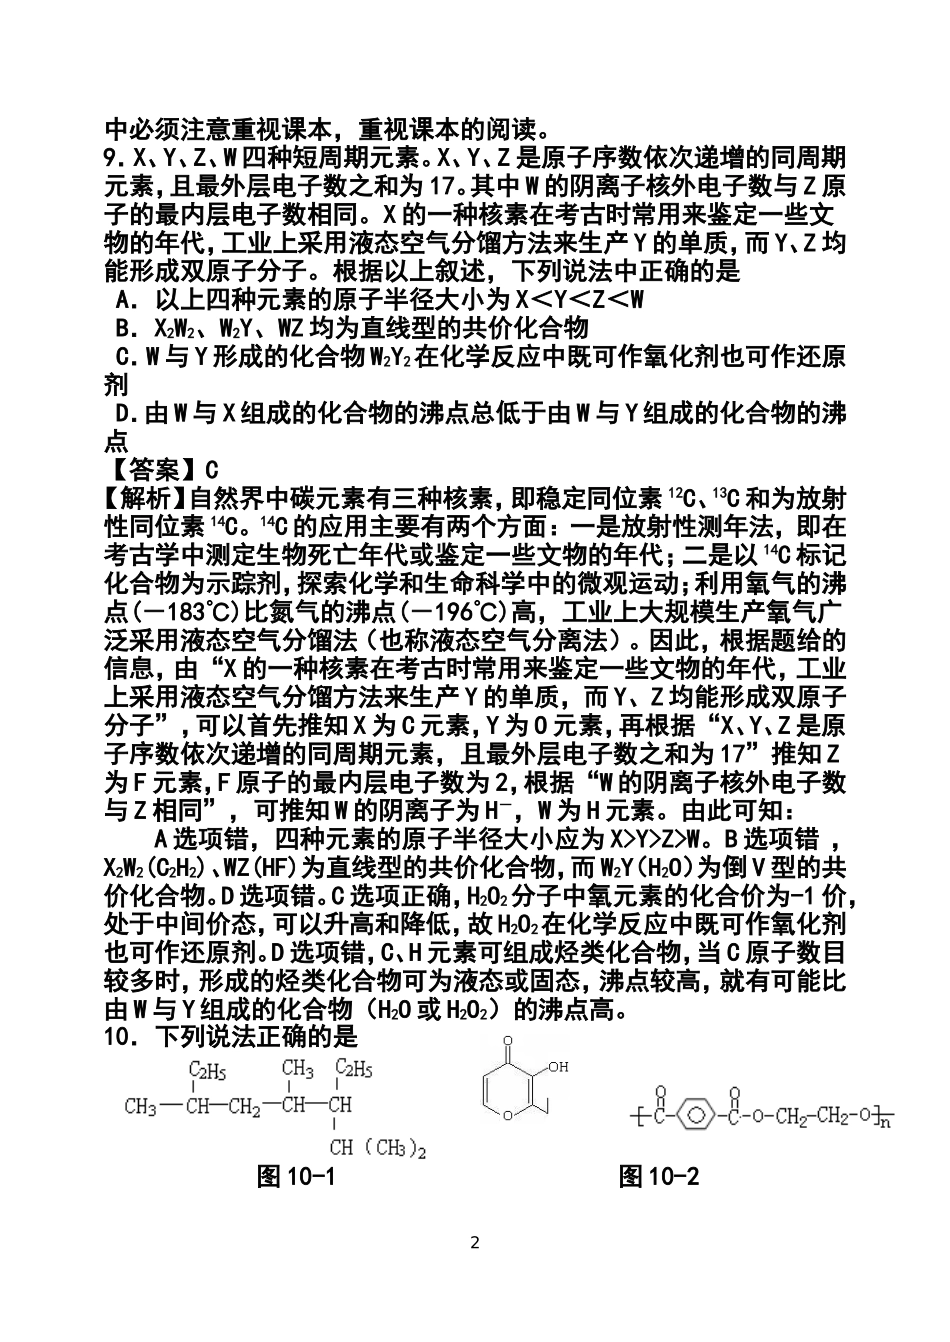 中必须注意重视课本，重视课本的阅读。
9．X、Y、Z、W四种短周期元素。X、Y、Z是原子序数依次递增的同周期
元素，且最外层电子数之和为17。其中W的阴离子核外电子数与Z原
子的最内层电子数相同。X的一种核素在考古时常用来鉴定一些文
物的年代，工业上采用液态空气分馏方法来生产Y的单质，而Y、Z均
能形成双原子分子。根据以上叙述，下列说法中正确的是
A．以上四种元素的原子半径大小为X＜Y＜Z＜W
B．X₂W₂、W₂Y、WZ均为直线型的共价化合物
C．W与Y形成的化合物W₂Y₂在化学反应中既可作氧化剂也可作还原
剂
D．由W与X组成的化合物的沸点总低于由W与Y组成的化合物的沸
点
【答案】C
【解析】自然界中碳元素有三种核素，即稳定同位素¹²C、¹³C和为放射
性同位素¹⁴C。¹⁴C的应用主要有两个方面：一是放射性测年法，即在
考古学中测定生物死亡年代或鉴定一些文物的年代；二是以¹⁴C标记
化合物为示踪剂，探索化学和生命科学中的微观运动；利用氧气的沸
点(－183℃)比氮气的沸点(－196℃)高，工业上大规模生产氧气广
泛采用液态空气分馏法（也称液态空气分离法）。因此，根据题给的
信息，由“X的一种核素在考古时常用来鉴定一些文物的年代，工业
上采用液态空气分馏方法来生产Y的单质，而Y、Z均能形成双原子
分子”，可以首先推知X为C元素，Y为O元素，再根据“X、Y、Z是原
子序数依次递增的同周期元素，且最外层电子数之和为17”推知Z
为F元素，F原子的最内层电子数为2，根据“W的阴离子核外电子数
与Z相同”，可推知W的阴离子为H⁻，W为H元素。由此可知：
A选项错，四种元素的原子半径大小应为X>Y>Z>W。B选项错，
X₂W₂(C₂H₂)、WZ(HF)为直线型的共价化合物，而W₂Y(H₂O)为倒V型的共
价化合物。D选项错。C选项正确，H₂O₂分子中氧元素的化合价为-1价，
处于中间价态，可以升高和降低，故H₂O₂在化学反应中既可作氧化剂
也可作还原剂。D选项错，C、H元素可组成烃类化合物，当C原子数目
较多时，形成的烃类化合物可为液态或固态，沸点较高，就有可能比
由W与Y组成的化合物（H₂O或H₂O₂）的沸点高。
10．下列说法正确的是
C₂H₅ CH₃ C₂H₅
CH₃—CH—CH₂—CH—CH
CH(CH₃)₂
O
OH
O
O O
[C— —C—O—CH₂—CH₂—O]n
图10-1 图10-2
2